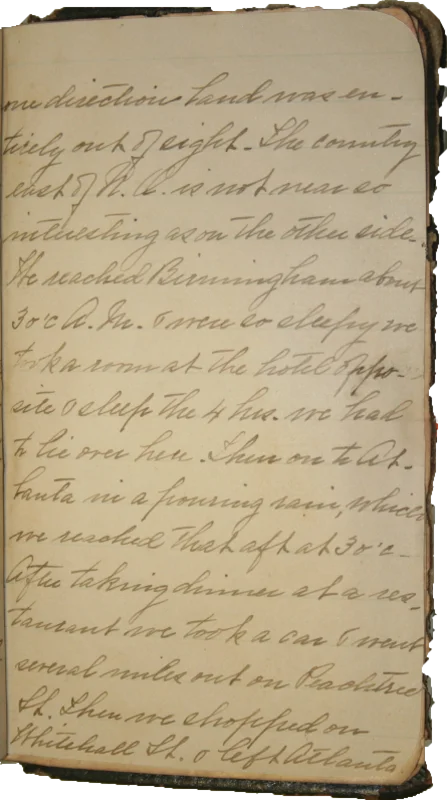 one direction land was en-
tirely out of sight. The country
east of N. O. is not near so
interesting as on the other side.
We reached Birmingham about
3 o'c A. M. & were so sleepy we
took a room at the hotel oppo-
site & sleep the 4 hrs. we had
to lie over here. Then on to At-
lanta in a pouring rain, which
we reached that aft at 3 o'c -
After taking dinner at a res-
taurant we took a car & went
several miles out on Peachtree
St. Then we shopped on
Whitehall St. & left Atlanta